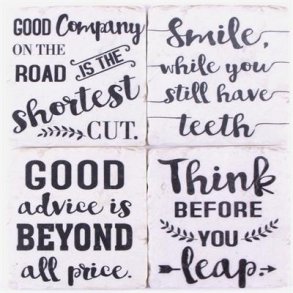 GOOD Company
ON THE
ROAD IS THE
shortest
CUT.
Smile,
while you
still have
teeth
GOOD
advice is
BEYOND
all price.
Think
BEFORE
YOU
leap.